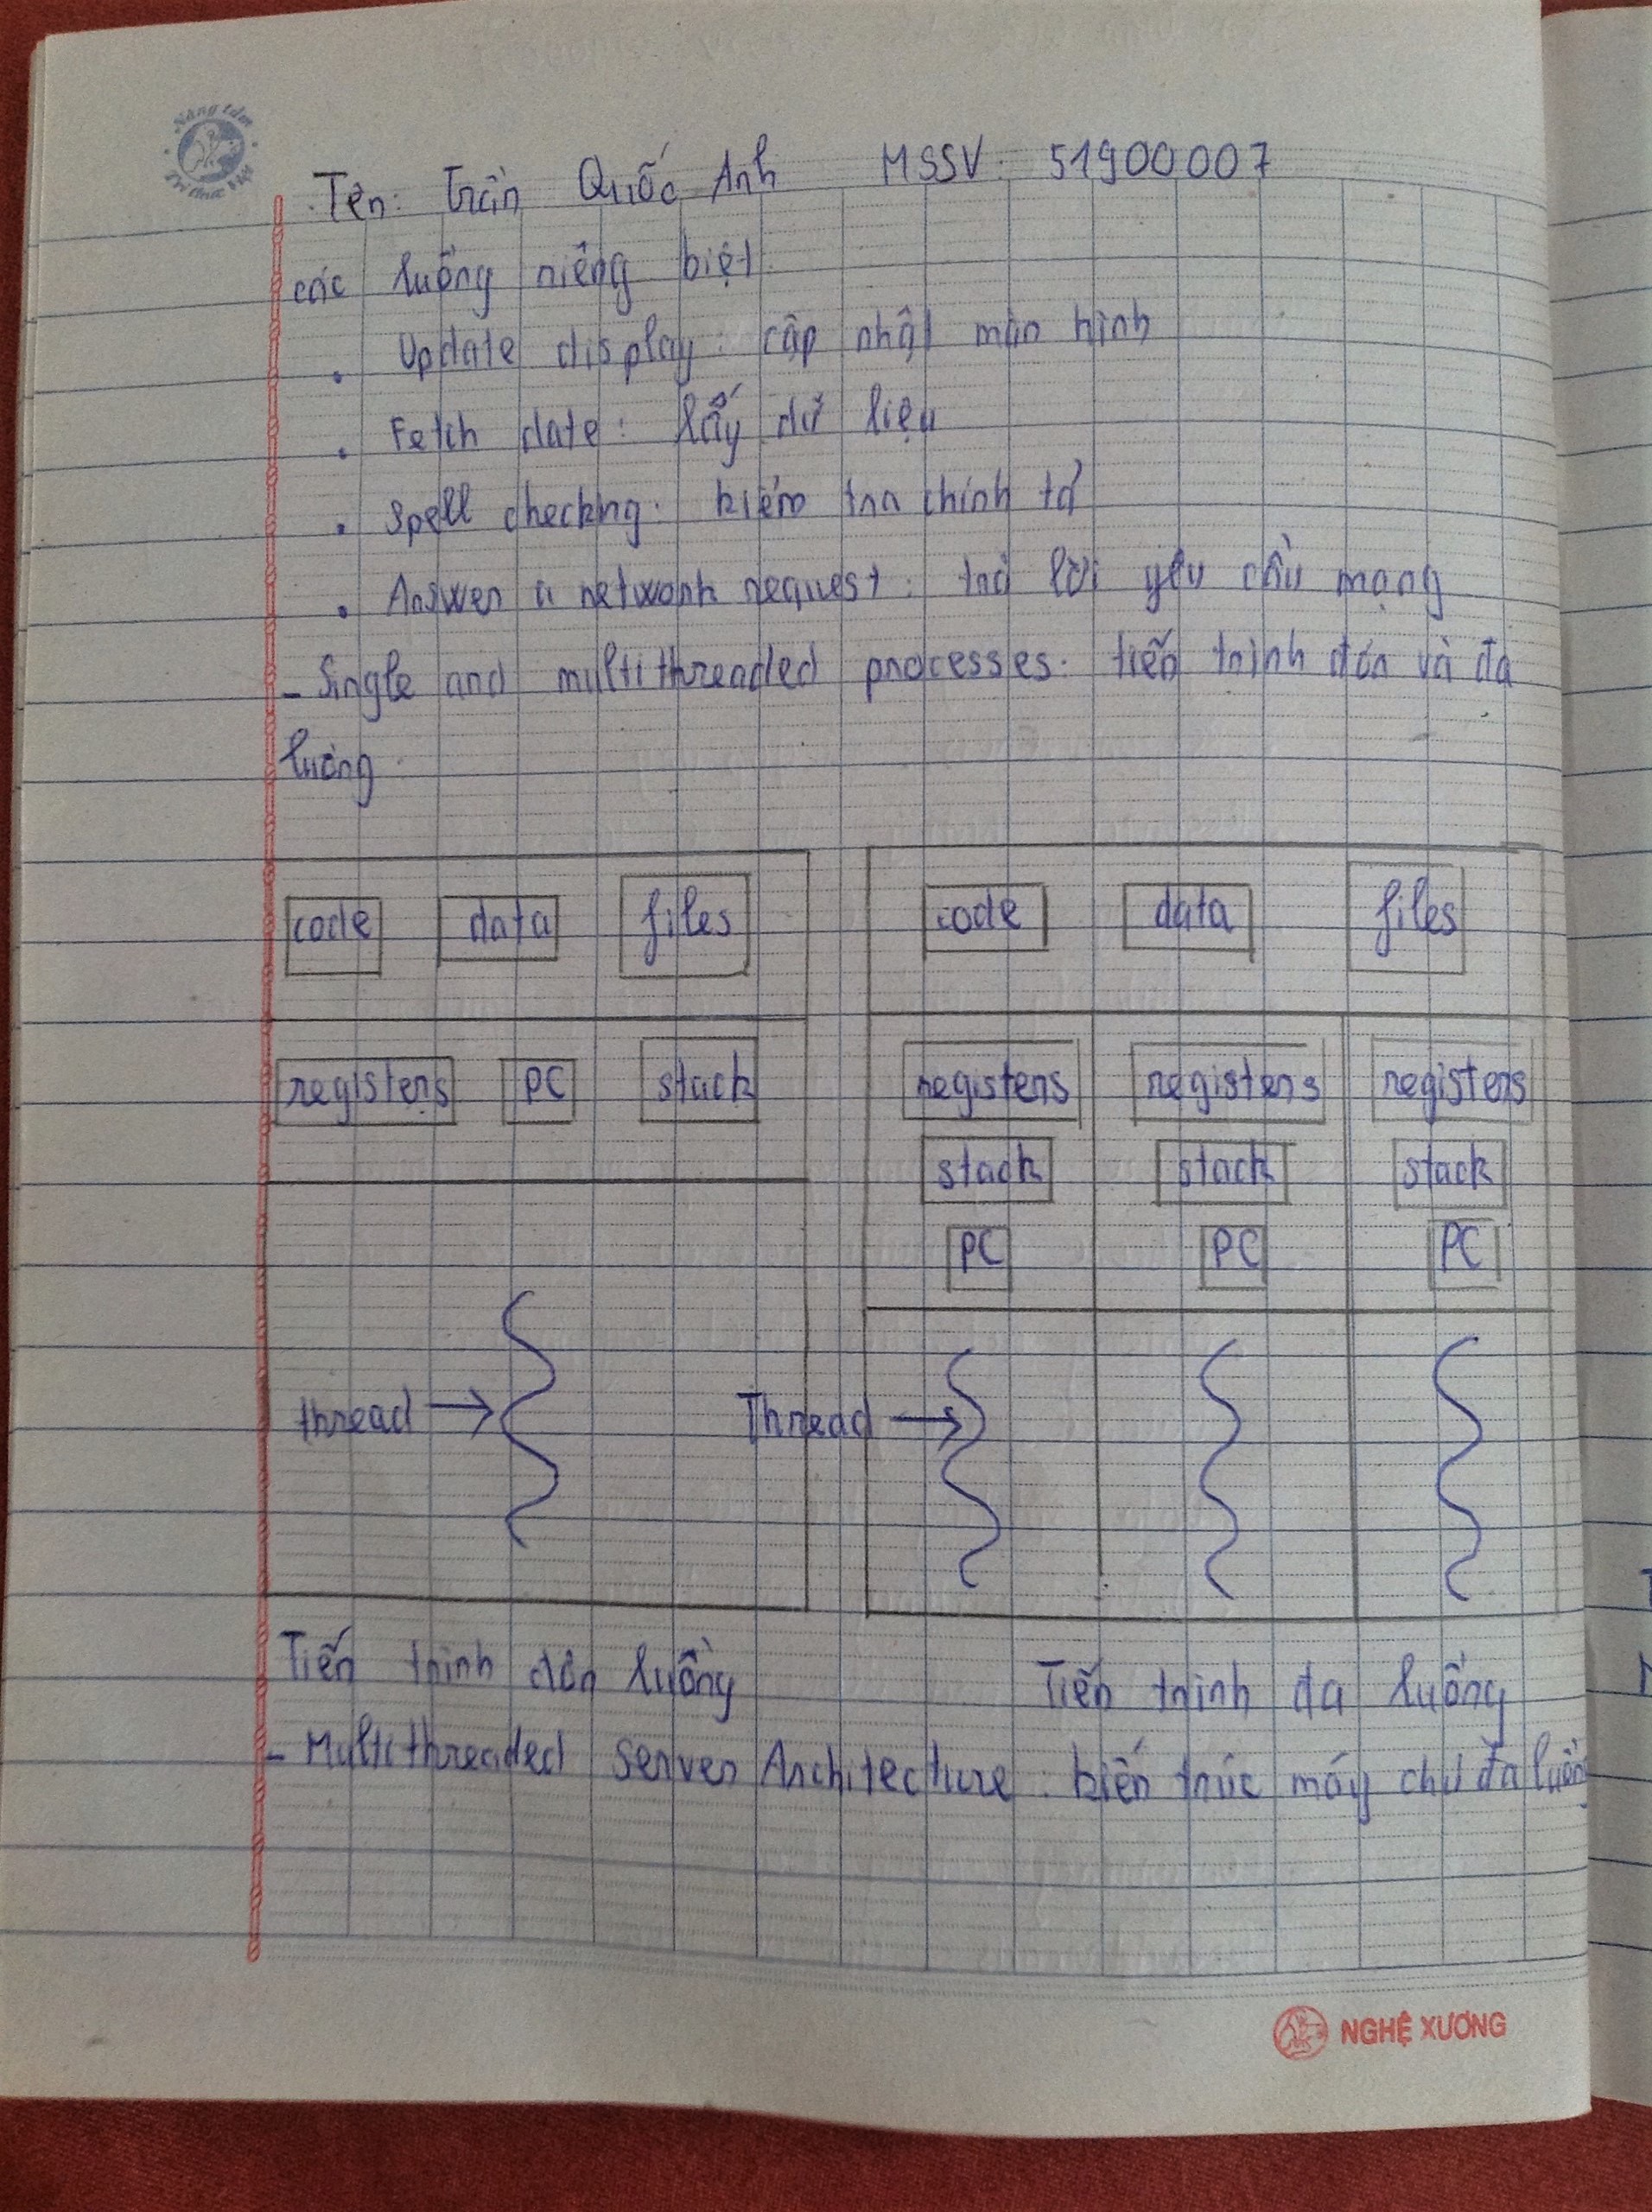 Nâng tầm
Tri thức Việt
Tên: Trần Quốc Anh MSSV: 51900007
các luồng riêng biệt
. Update display: cập nhật màn hình
. Fetch date: lấy dữ liệu
. Spell checking: kiểm tra chính tả
. Answer a network request: trả lời yêu cầu mạng
- Single and multithreaded processes: tiến trình đơn và đa
luồng
code data files code data files
registers PC stack registers registers registers
stack stack stack
PC PC PC
thread Thread
Tiến trình đơn luồng Tiến trình đa luồng
- Multithreaded Server Architecture: kiến trúc máy chủ đa luồng
NGHỆ XƯƠNG